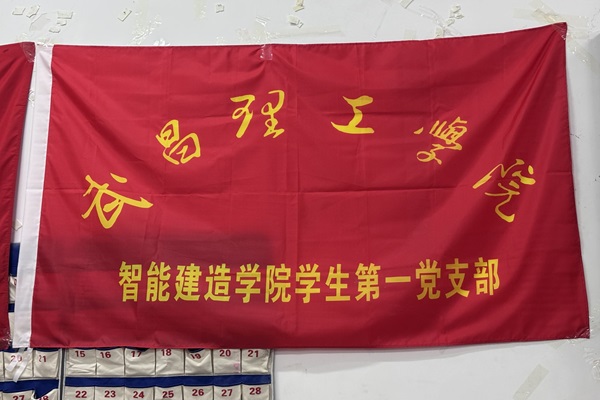 武昌理工学院
智能建造学院学生第一党支部
20 21 15 16 17 18 19 20 21
27 28 22 23 24 25 26 27 28